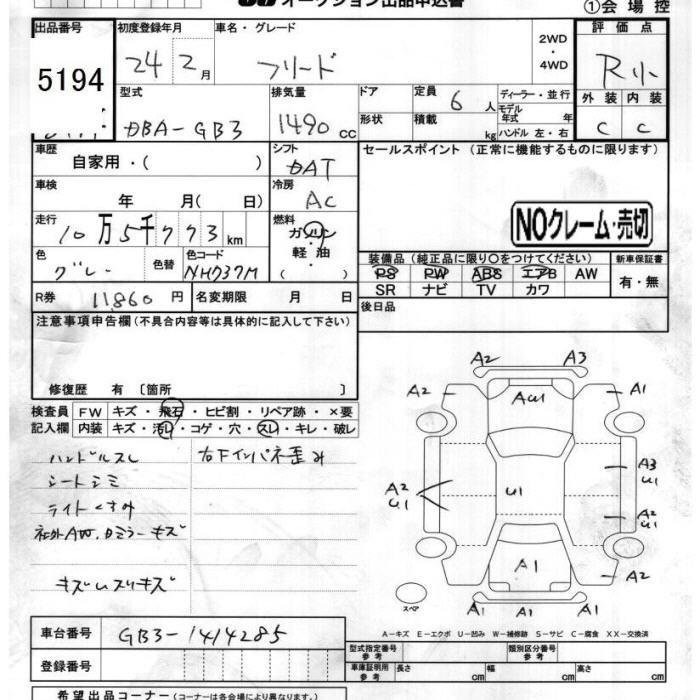 オークション出品申込書 ①会場控
出品番号 初度登録年月 車名・グレード 2WD 評価点
5194 24 2月 フリード ・4WD R小
型式 排気量 ドア 定員 6人 ディーラー・並行 外装 内装
DBA-GB3 1490cc 形状 積載 kg モデル年式 年 ハンドル 左・右 C C
車歴 自家用・( ) シフト DAT セールスポイント (正常に機能するものに限ります)
車検 年 月( 日) 冷房 AC
走行 10万5千773km 燃料 ガソリン・軽油・( ) NOクレーム・売切
色 グレー 色替 色コード NH737M 装備品 (純正品に限り○をつけてください) 新車保証書
PS PW ABS エアB AW 有・無
SR ナビ TV カワ
R券 11860円 名変期限 月 日 後日品
注意事項申告欄 (不具合内容等は具体的に記入して下さい)
修復歴 有 〔箇所 〕
検査員 FW キズ・飛石・ヒビ割・リペア跡・×要
記入欄 内装 キズ・汚レ・コゲ・穴・スレ・キレ・破レ
ハンドルスレ 右Fインパネ歪み
シートシミ
ライトくすみ
社外AW.ロミラーキズ
キズUスリキズ
A2 A3
A2 AU1 A1
A2 U1 U1 A3 U1
A2 U1
A1 A2
スペア A1 A1
A-キズ E-エクボ U-凹み W-補修跡 S-サビ C-腐食 XX-交換済
車台番号 GB3-1414285 型式指定番号 参考 類別区分番号 参考
登録番号 車庫証明用 参考 長さ cm 幅 cm 高さ cm
希望出品コーナー (コーナーは各会場により異なります。)